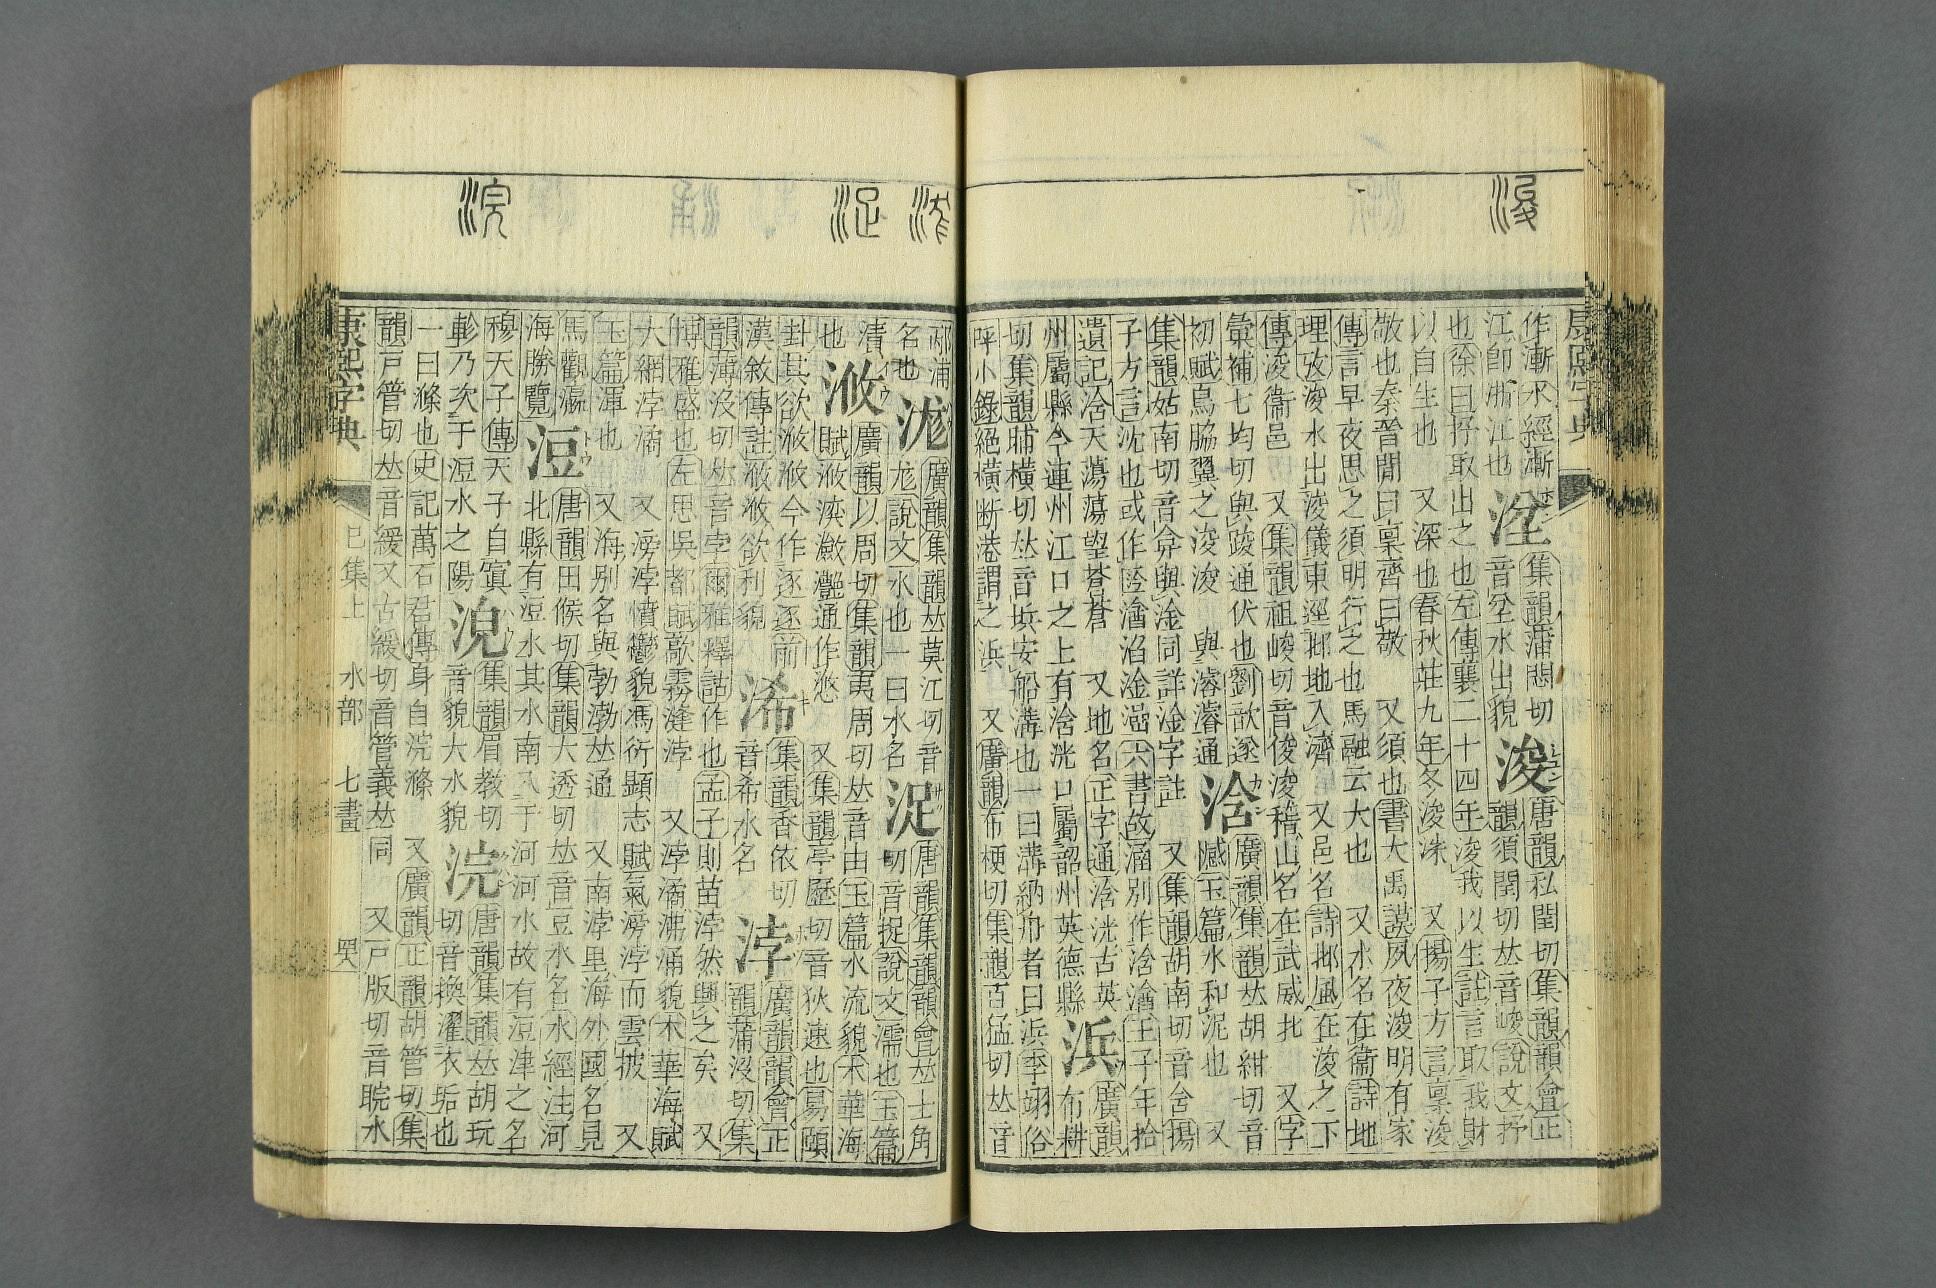 浚
作漸水經漸
江卽浙江也
集韻蒲悶切
音坌水出貌
浚
唐韻私閏切集韻韻會正
韻須閏切𠀤音峻說文抒
也徐曰抒取出之也左傳襄二十四年浚我以生註言取我財
以自生也 又深也春秋莊九年冬浚洙 又揚子方言稟浚
敬也秦晉閒曰稟齊曰敬 又須也書大禹謨夙夜浚明有家
傳言早夜思之須明行之也馬融云大也 又水名在衞詩地
理攷浚水出浚儀東經邶地入濟 又邑名詩邶風在浚之下
傳浚衞邑 又集韻祖峻切音俊浚稽山名在武威北 又字
彙補七均切與踆逡通伏也劉歆遂
初賦鳥脇翼之浚浚 與濬濬通
浛
廣韻集韻𠀤胡紺切音
憾玉篇水和泥也 又
集韻姑南切音弇與淦同詳淦字註 又集韻胡南切音含揚
子方言沈也或作㴠㵅淊淦㴠六書故涵別作浛㵅王子年拾
遺記浛天蕩蕩望蒼蒼 又地名正字通浛洸古英
州屬縣今連州江口之上有浛洸口屬韶州英德縣
浜
廣韻
布耕
切集韻晡橫切𠀤音㧍安船溝也一曰溝納舟者曰浜季翊俗
呼小錄絕橫斷港謂之浜 又廣韻布梗切集韻百猛切𠀤音
浞
浣
邴浦
名也
浝
廣韻集韻𠀤莫江切音
尨說文水也一曰水名
浞
唐韻集韻韻會𠀤士角
切音捉說文濡也玉篇
漬
也
浟
廣韻以周切集韻夷周切𠀤音由玉篇水流貌木華海
賦浟湙瀲灩通作悠 又集韻亭歷切音狄速也易頤
卦其欲浟浟今作逐逐前
漢敘傳註浟浟欲利貌
浠
集韻香依切
音希水名
浡
廣韻韻會正
韻蒲沒切集
韻薄沒切𠀤音孛爾雅釋詁作也孟子則苗浡然興之矣 又
博雅盛也左思吳都賦歊霧漨浡 又浡潏沸涌貌木華海賦
天網浡潏 又滂浡憤鬱貌馮衍顯志賦氣滂浡而雲披 又
玉篇渾也 又海別名與勃渤𠀤通 又南浡里海外國名見
馬觀瀛
海勝覽
浢
唐韻田候切集韻大透切𠀤音豆水名水經注河
北縣有浢水其水南入于河河水故有浢津之名
穆天子傳天子自寘
軨乃次于浢水之陽
㴘
集韻眉教切
音貌大水貌
浣
唐韻集韻𠀤胡玩
切音換濯衣垢也
一曰滌也史記萬石君傳身自浣滌 又廣韻正韻胡管切集
韻戸管切𠀤音緩又古緩切音管義𠀤同 又戸版切音睆水
康熙字典
巳集上 水部 七畫